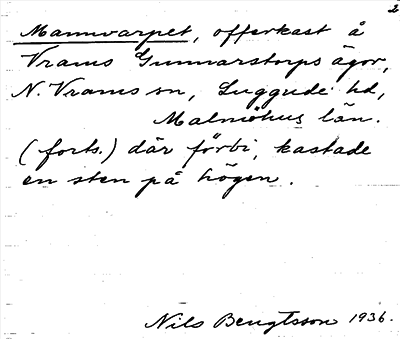 2
Mannvarpet, offerkast å
Vrams Gunnarstorps ägor,
N. Vrams sn, Luggude hd,
Malmöhus län.
(forts.) där förbi, kastade
en sten på högen.
Nils Bengtsson 1936.